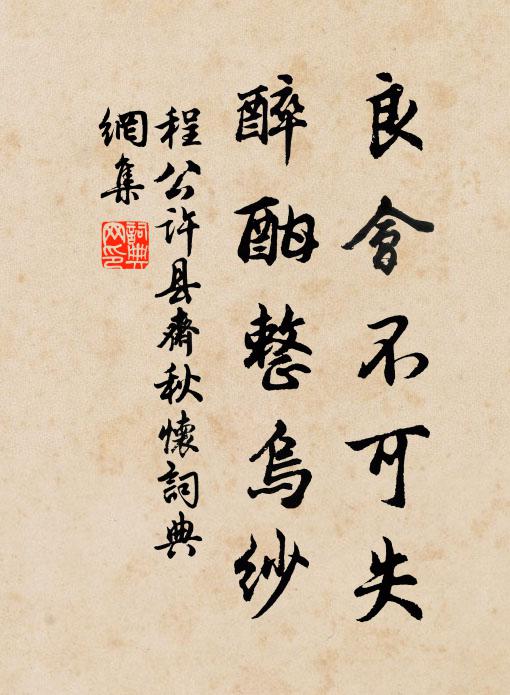 良會不可失
醉酣整烏紗
程公许县齋秋懷詞典
網集
詞典網印